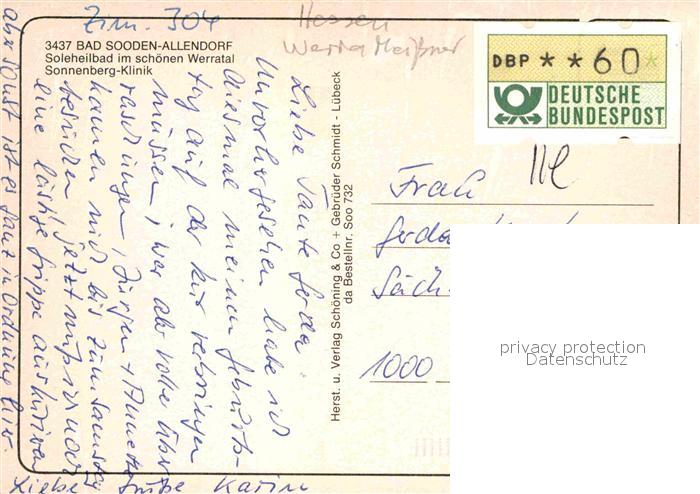 Zim. 304
Hessen
Werra Meißner
3437 BAD SOODEN-ALLENDORF
Soleheilbad im schönen Werratal
Sonnenberg-Klinik
DBP **60*
DEUTSCHE
BUNDESPOST
Herst. u. Verlag Schöning & Co + Gebrüder Schmidt - Lübeck
da Bestellnr. Soo 732
Liebe Tante Gerda!
Unvorhergesehen habe ich
diesmal meinen Geburts-
tag auf der Kur verbringen
müssen, war aber voller Über-
raschungen, Jürgen + Annette
kamen mich bis zum Samstag
besuchen, jetzt muß ich nur
eine lästige Grippe auskurieren
aber sonst ist es ganz in Ordnung hier.
Liebe Grüße Karin
Frau
Gerda
Säch
1000
privacy protection
Datenschutz